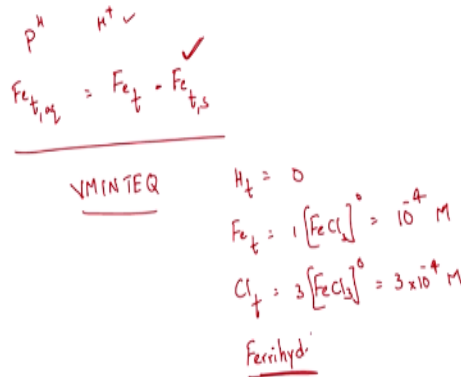 pH H⁺ ✓
Fe_t,aq = Fe_t - Fe_t,s ✓
VMINTEQ
H_t = 0
Fe_t = 1[FeCl₃]⁰ = 10⁻⁴ M
Cl_t = 3[FeCl₃]⁰ = 3×10⁻⁴ M
Ferrihyd.